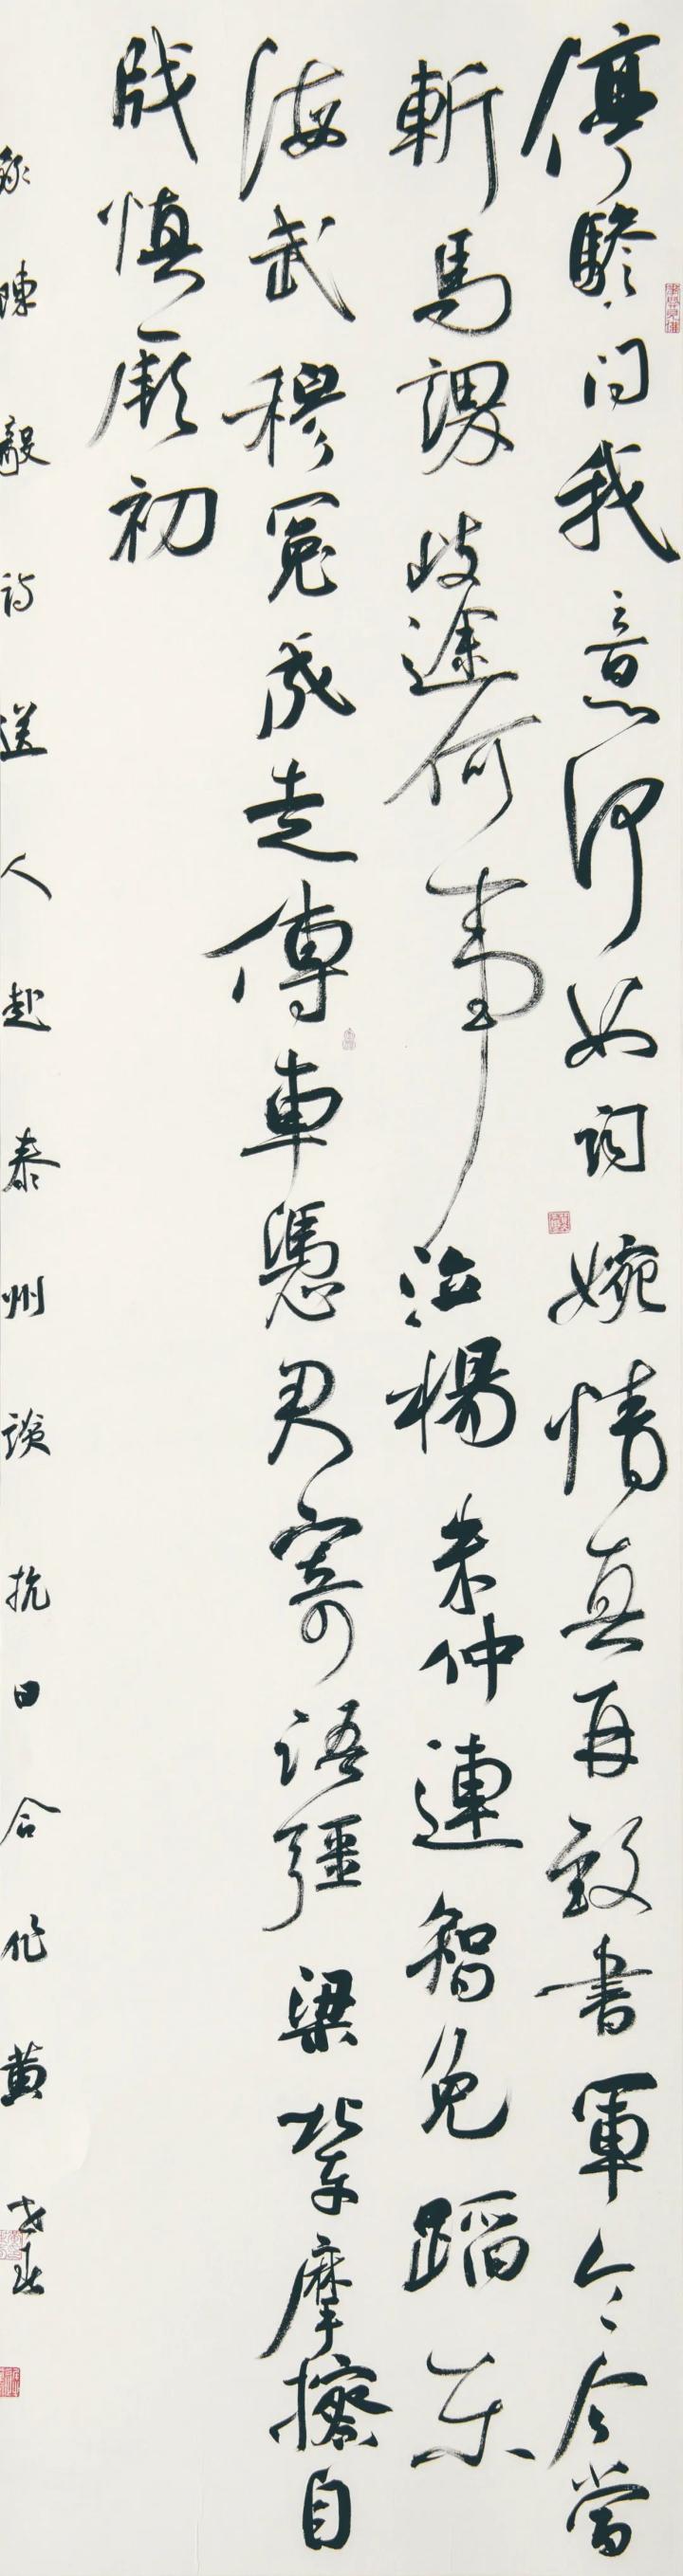 停驂问我意何如詞婉情真再致書軍令今當
斬馬謖歧途何事泣楊朱仲連智免蹈东
海武穆冤成走傳車憑君寄語彊梁輩摩擦自
戕慎厥初
錄陳毅詩送人赴泰州談抗日合作黄